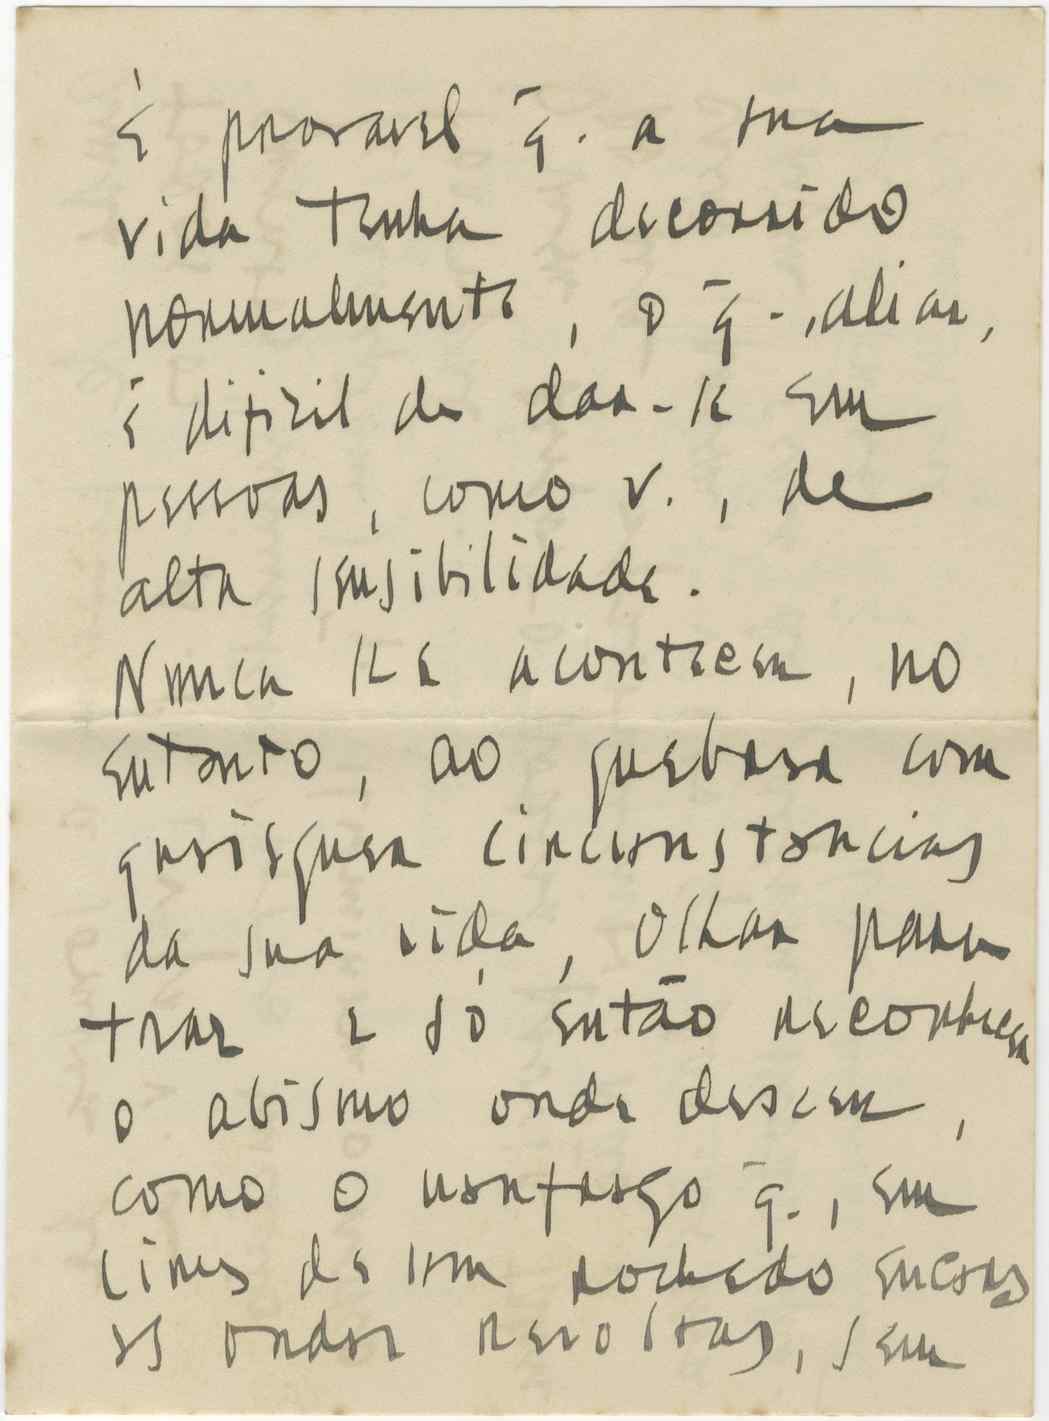 É provavel q̃. a sua
vida tenha decorrido
normalmente, o q̃., alias,
é dificil de dar-se em
pessoas, como v., de
alta sensibilidade.
Nunca lhe aconteceu, no
entanto, ao quebrar com
quaisquer circunstancias
da sua vida, olhar para
traz e só então reconhecer
o abismo onde desceu,
como o naufrago q̃., em
cima de um rochedo encara
as ondas revoltas, sem